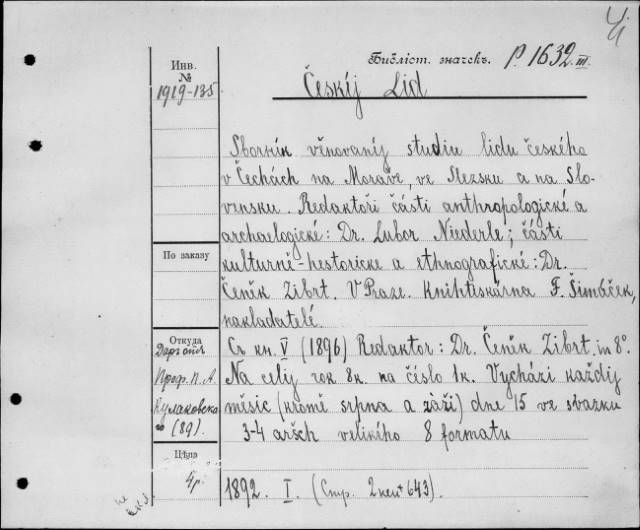 Библіот. значекъ. P. 1632 III.
Инв.
№
1919-135
Českij Lid
Sborník věnovanij studiu lidu českého
v Čechách na Moravě, ve Slezsku a na Slo-
vensku. Redaktoři části anthropologické a
archaelogické: Dr. Lubor Niederle; části
По заказу
kulturně-historické a ethnografické: Dr.
Čeněk Zibrt. V Praze. Knihtiskárna F. Šimáček,
nakladatelé.
Откуда
Даръ отъ
Проф. П. А.
Кулаковска-
го (89).
Съ кн. V (1896) Redaktor: Dr. Čeněk Zibrt. in 8°
Na celij rok 8k. na číslo 1k. Vychází každij
měsic (kromě srpna a záři) dne 15 ve svazku
3-4 aršch velikého 8 formatu
Цѣна
4р.
1892. I. (Стр. 2 нен + 643).